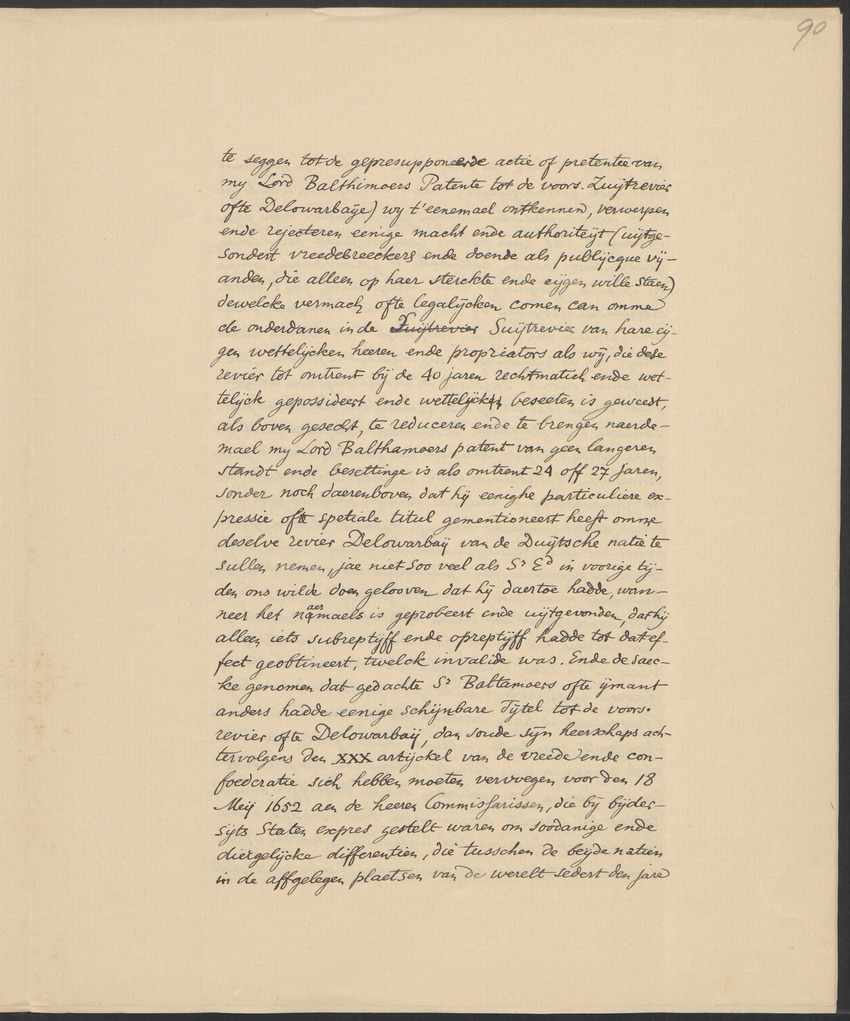 90
te seggen tot de gepresupponeerde actie of pretentie van
my Lord Balthimoers Patente tot de voors. Zuijtrevier
ofte Delowarbaye) wy t'eenemael ontkennen, verwerpen
ende rejecteren eenige macht ende authoriteijt (uijtge-
sondert vreedebreeckers ende doende als publijcque vij-
anden, die alleen op haer sterckte ende eijgen wille staen)
dewelcke vermach ofte legalijcken comen can omme
de onderdanen in de Zuijtrevier Suijtrevier van hare eij-
gen wettelijcken heeren ende propriators als wij, die dese
revier tot omtrent bij de 40 jaren rechtmatich ende wet-
telijck gepossideert ende wettelijcken beseeten is geweest,
als boven gesecht, te reduceren ende te brengen naerde-
mael my Lord Balthamoers patent van geen langeren
standt ende besettinge is als omtrent 24 off 27 jaren,
sonder noch daerenboven dat hij eenighe particuliere ex-
pressie ofte spetiale titul gementioneert heeft omme
deselve revier Delowarbaij van de Duijtsche natie te
sullen nemen, jae niet soo veel als Sr Ed in voorige tij-
den ons wilde doen gelooven dat hij daertoe hadde, wan-
neer het naermaels is geprobeert ende uijtgevonden, dat hij
alleen iets subreptijff ende opreptijff hadde tot dat ef-
fect geobtineert, twelck invalide was. Ende de saec-
ke genomen dat gedachte Sr Baltamoers ofte ijmant
anders hadde eenige schijnbare Tijtel tot de voors.
revier ofte Delowarbaij, dan soude sijn heerschaps ach-
tervolgens den XXX artijckel van de vreede ende con-
foederatie sich hebben moeten vervoegen voor den 18
Meij 1652 aen de heeren Commissarissen, die bij bijder-
sijts Staten expres gestelt waren om soodanige ende
diergelijcke differentien, die tusschen de beijde natien
in de affgelegen plaetsen van de werelt sedert den jare